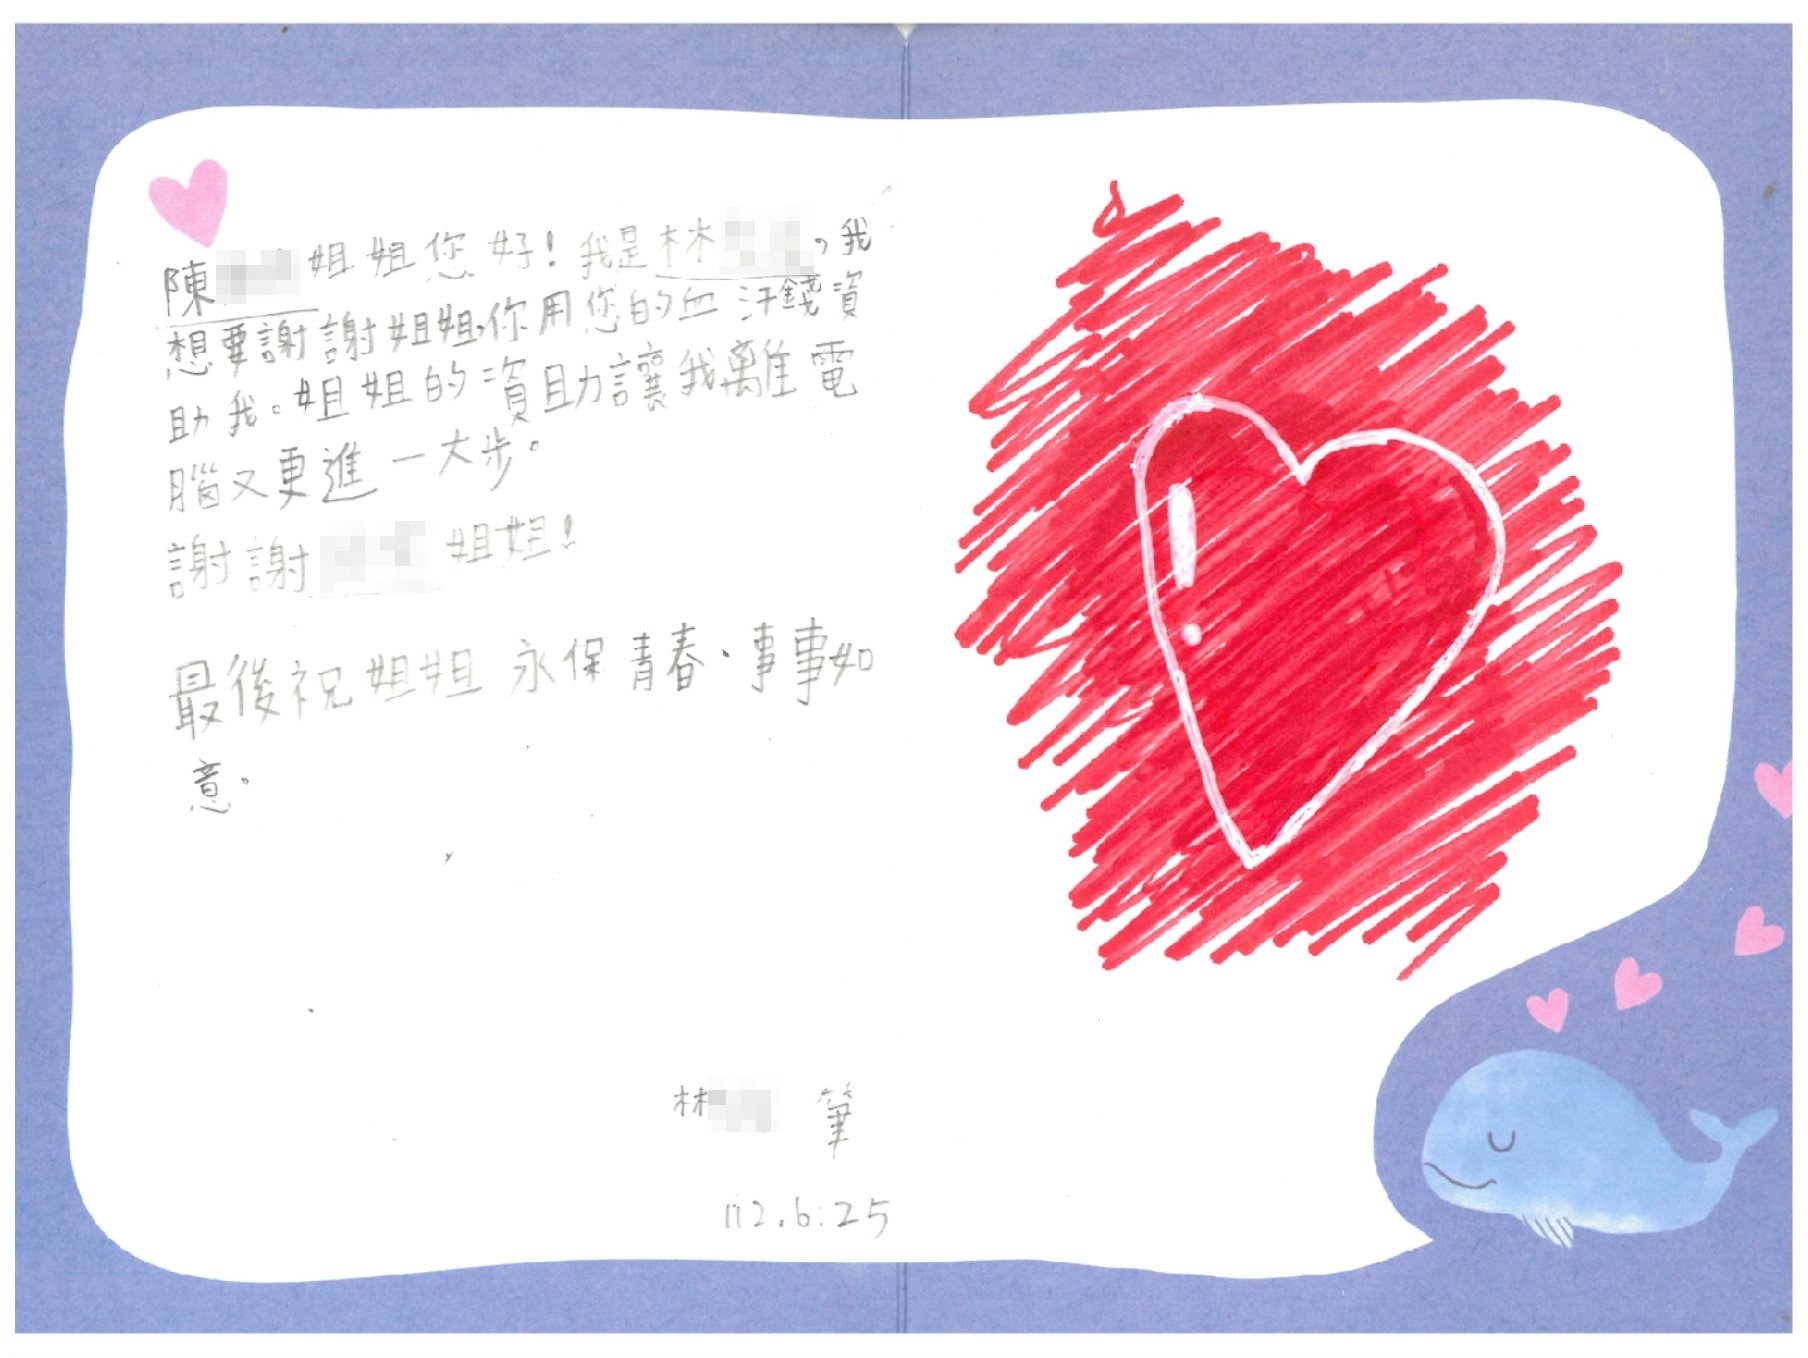 陳 姐姐您好!我是林 ,我
想要謝謝姐姐,你用您的血汗錢資
助我。姐姐的資助讓我離電
腦又更進一大步。
謝謝 姐姐!
最後祝姐姐永保青春、事事如
意。
林 筆
112.6.25